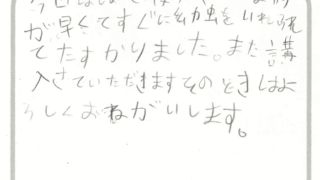 が早くてすぐに幼虫をいれられ
てたすかりました。また講
入さていただきますそのときはよ
ろしくおねがいします。